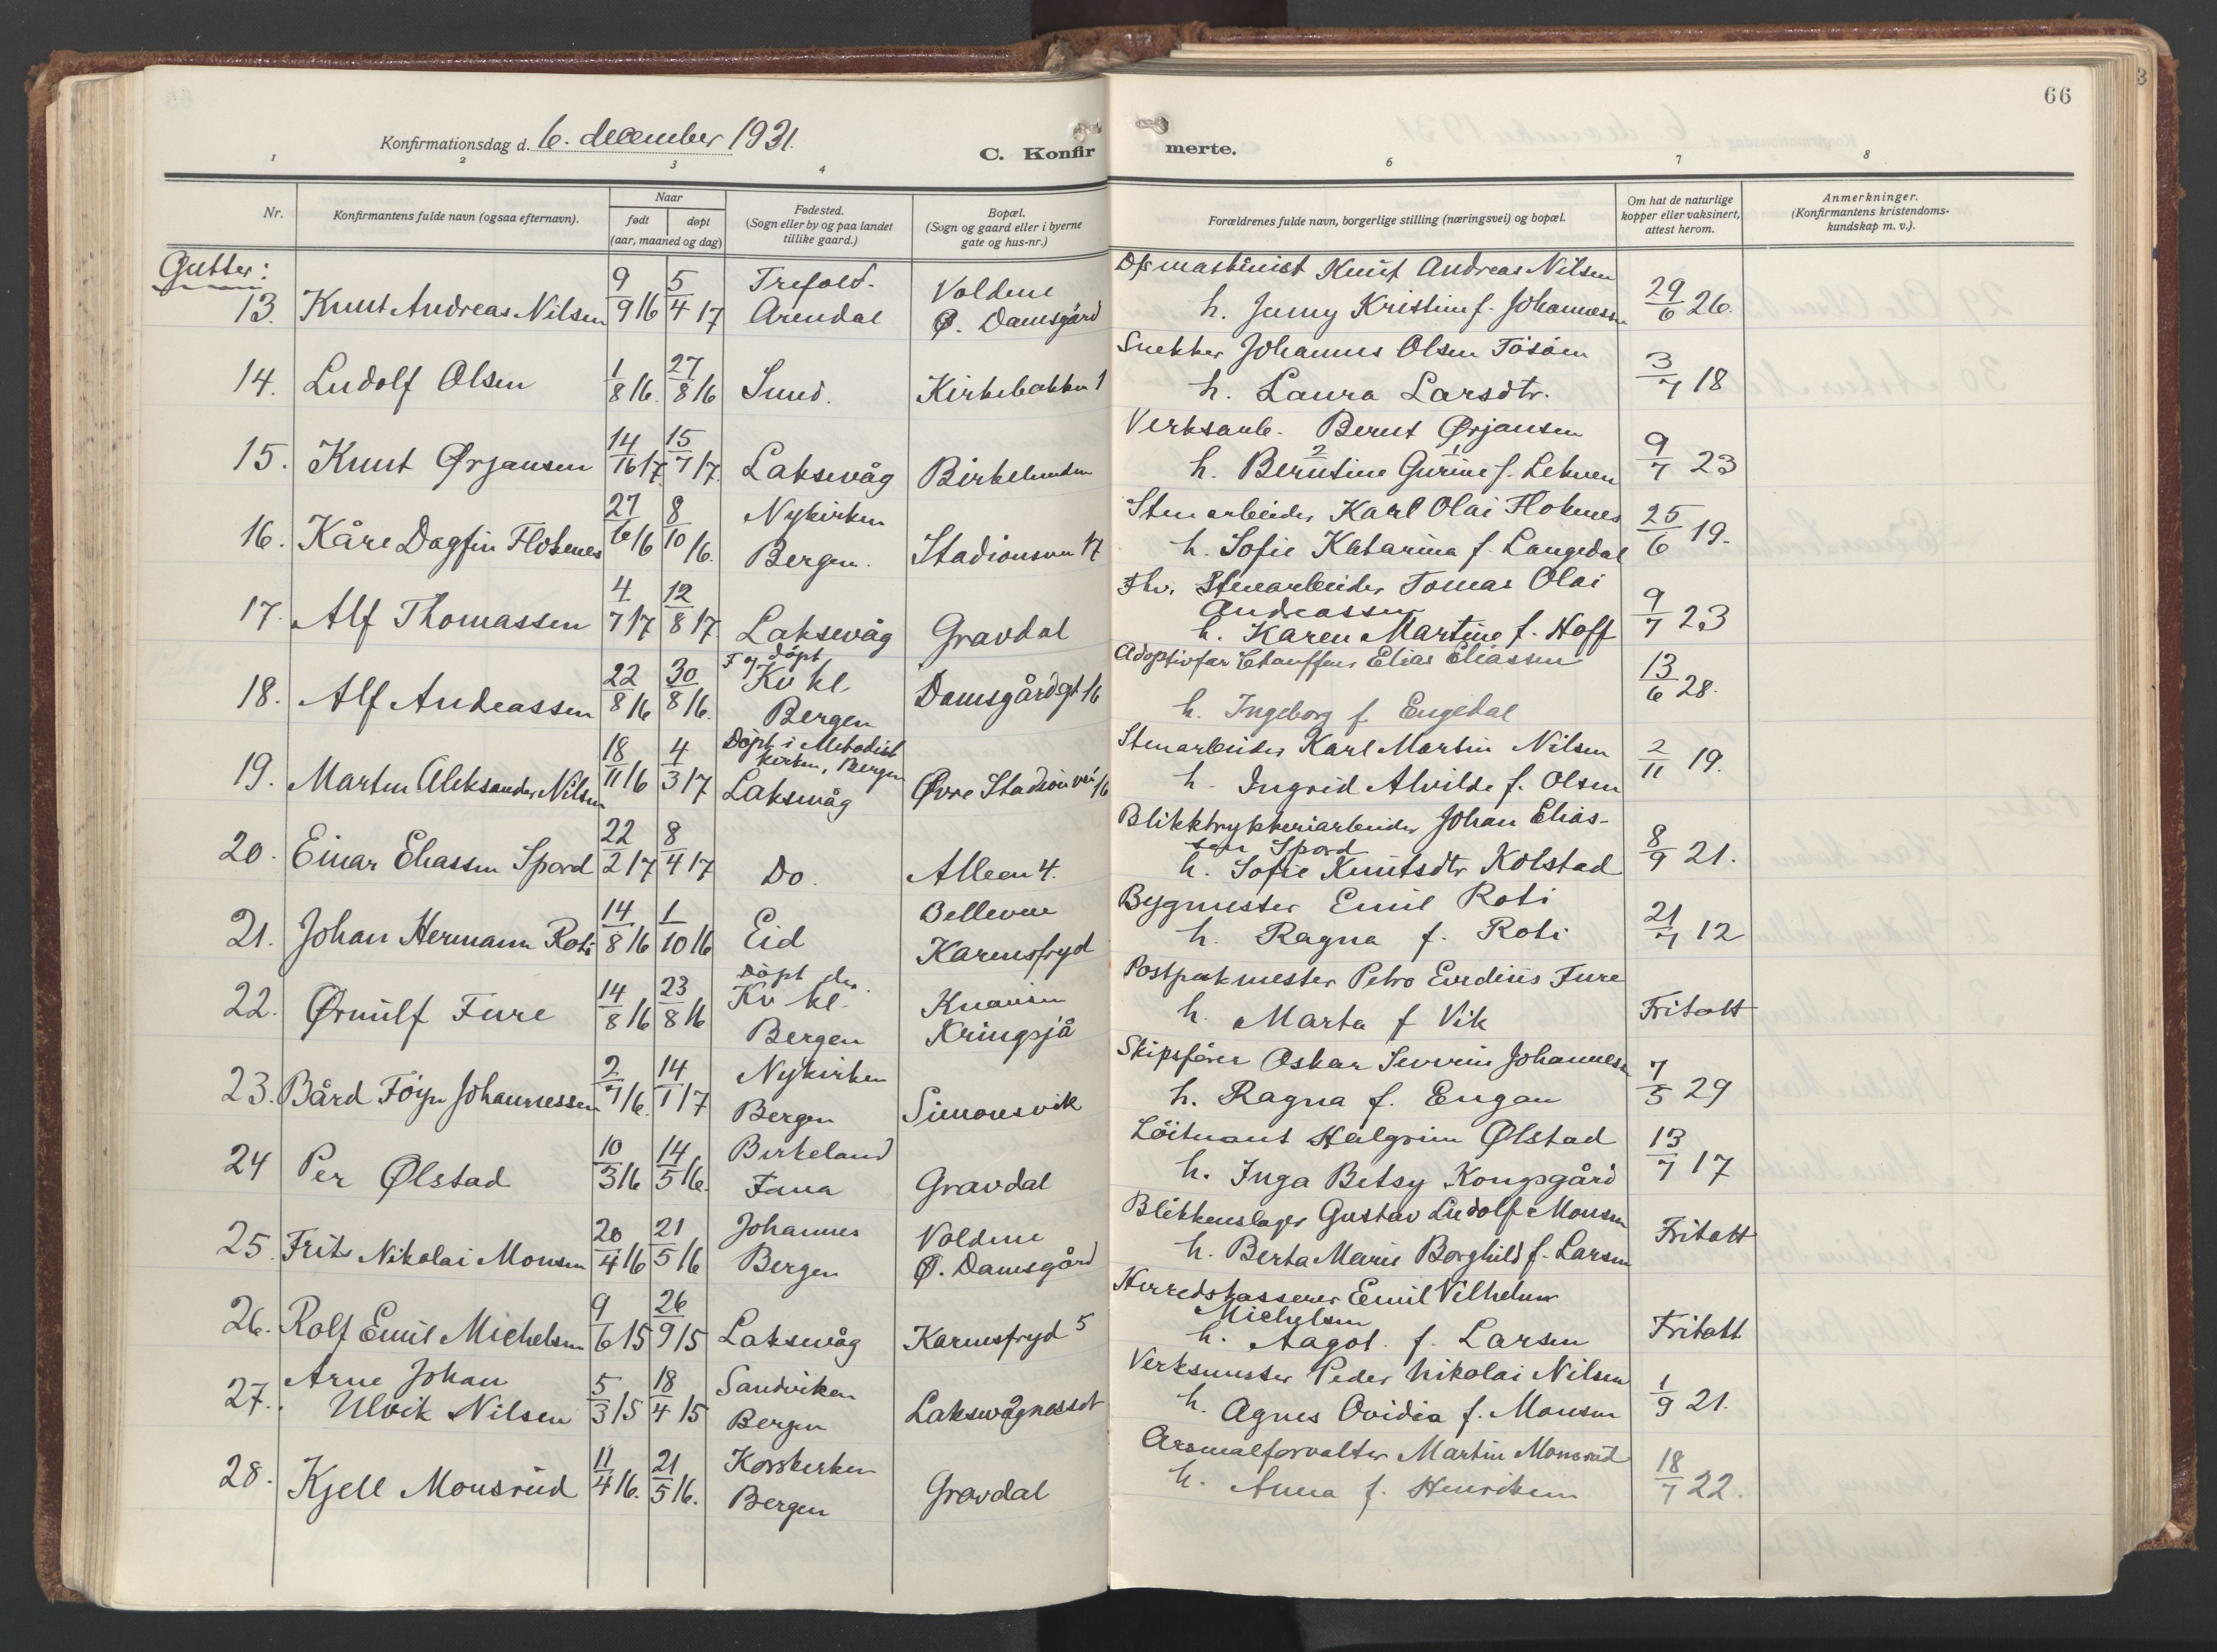 66
Konfirmationsdag d. 6. december 1931.
C. Konfir
merte.
1 2 3 4 6 7 8
Nr.
Konfirmantens fulde navn (ogsaa efternavn).
Naar
født døpt
(aar, maaned og dag)
Fødested.
(Sogn eller by og paa landet
tillike gaard.)
Bopæl.
(Sogn og gaard eller i byerne
gate og hus-nr.)
Forældrenes fulde navn, borgerlige stilling (næringsvei) og bopæl.
Om hat de naturlige
kopper eller vaksinert,
attest herom.
Anmerkninger.
(Konfirmantens kristendoms-
kundskap m. v.).
Gutter:
13. Knut Andreas Nilsen 9/9 16 5/4 17 Trefold.
Arendal
Voldene
Ø. Damsgård
D/s maskinist Knut Andreas Nilsen
h. Jenny Kristine f. Johannessen
29/6 26.
14. Ludolf Olsen 1/8 16. 27/8 16 Sund. Kirkebakken 1
Snekker Johannes Olsen Tösöen
h. Laura Larsdtr.
3/7 18
15. Knut Ørjansen 14/16 17. 15/7 17. Laksevåg Birkelunden
Verksarb. Bernt Ørjansen
h. Berntine Gurine f. Lekven
2 1
9/7 23
16. Kåre Dagfin Flotenes 27/6 16 8/10 16. Nykirken
Bergen. Stadionsvn 17
Stenarbeider Karl Olai Flotenes
h. Sofie Katarina f. Langedal
25/6 19.
17. Alf Thomassen 4/7 17 12/8 17 Laksevåg Gravdal
Fhv. Stenarbeider Tomas Olai
Andreassen
h. Karen Martine f. Hoff
9/7 23
18. Alf Andreassen 22/8 16 30/8 16. F og döpt
Kv kl.
Bergen
Damsgårdgt 16
Adoptivfar Chauffeur Elias Eliassen
h. Ingeborg f. Engedal
13/6 28.
19. Martin Aleksander Nilsen 18/11 16 4/3 17 Döpt i Metodist
kirken, Bergen
Laksevåg
Øvre Stadionvei 16
Stenarbeider Karl Martin Nilsen
h. Ingrid Alvilde f. Olsen
2/11 19.
20. Einar Eliassen Spord 22/2 17 8/4 17 Do. Alleen 4.
Blikktrykkeriarbeider Johan Elias-
sen Spord
h. Sofie Knutsdtr Kolstad
8/9 21.
21. Johan Hermann Roti 14/8 16 1/10 16 Eid
Bellevue
Karensfryd
Bygmester Emil Roti
h. Ragna f. Roti
21/7 12
22. Ørnulf Fure 14/8 16 23/8 16 Döpt do.
Kv kl.
Bergen
Knausen
Kringsjå
Postpakmester Petro Evrdius Fure
h. Marta f Vik
Fritatt
23. Bård Föyn Johannessen 2/7 16. 14/1 17 Nykirken
Bergen
Simonsvik
Skipsförer Oskar Severin Johannessen
h. Ragna f. Engan
7/5 29
24 Per Ølstad 10/3 16 14/5 16. Birkeland
Fana
Gravdal
Löitnant Halgrim Ølstad
h. Inga Betsy Kongsgård
13/7 17
25. Frits Nikolai Monsen 20/4 16 21/5 16 Johannes
Bergen
Voldene
Ø. Damsgård
Blikkenslager Gustav Ludolf Monsen
h. Berta Marie Borghild f. Larsen
Fritatt
26. Rolf Emil Michelsen 9/6 15 26/9 15 Laksevåg Karensfryd 5
Herredskasserer Emil Vilhelm
Michelsen
h. Aagot. f. Larsen
Fritatt
27. Arne Johan
Ulvik Nilsen 5/3 15 18/4 15 Sandviken
Bergen
Laksevågnesset
Verksmester Peder Nikolai Nilsen
h. Agnes Ovidia f. Monsen
1/9 21.
28. Kjell Monsrud 11/4 16. 21/5 16. Korskirken
Bergen
Gravdal
Arsenalforvalter Martin Monsrud
h. Anna f. Henriksen
18/7 22.